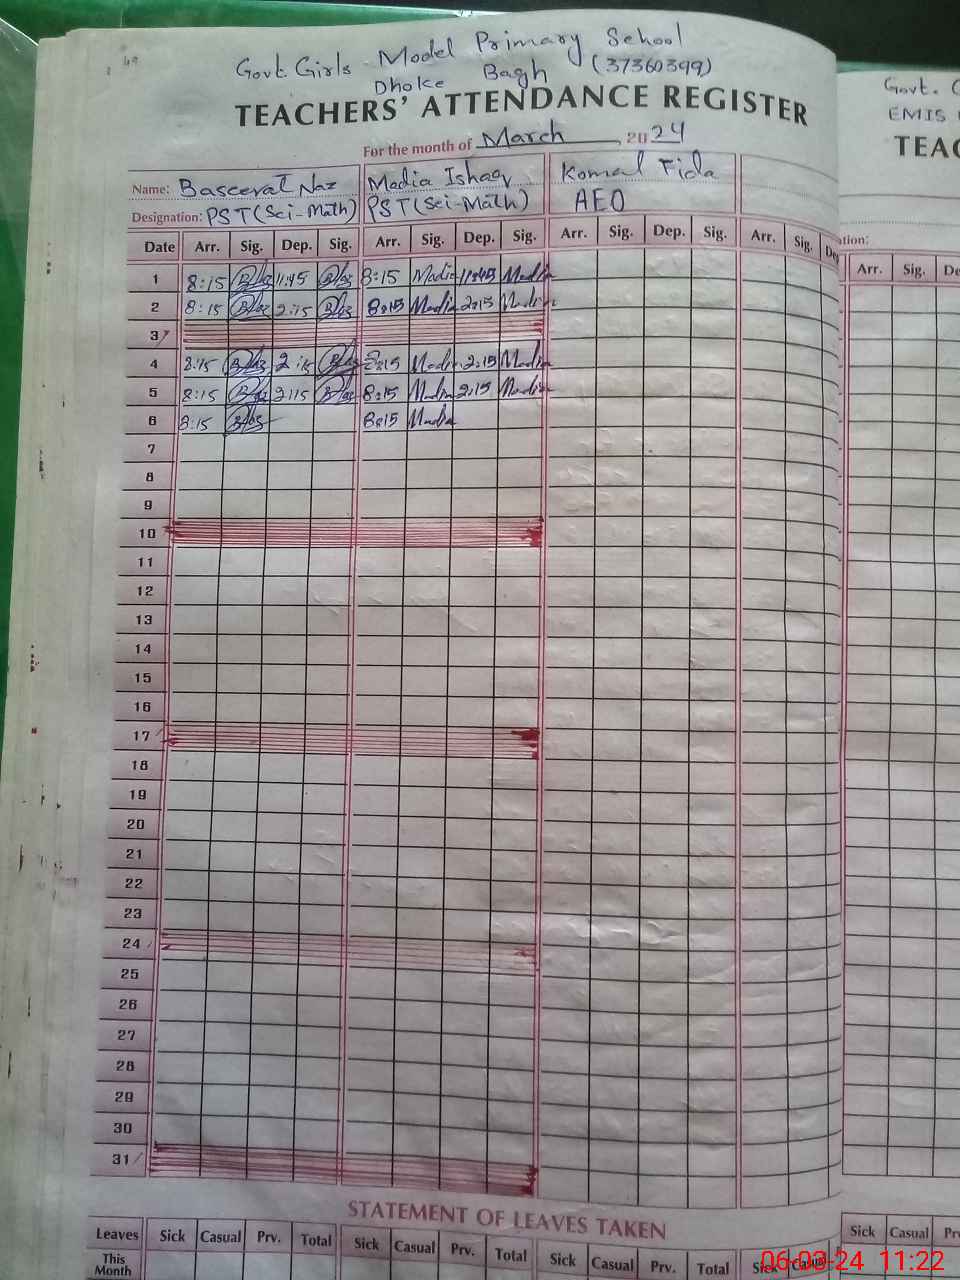 49
Govt. Girls Model Primary School
Dhoke Bagh (37360399)
TEACHERS' ATTENDANCE REGISTER
For the month of March, 2024
Name: Baseerat Naz Madia Ishaq Komal Fida
Designation: PST (Sci-Math) PST (Sci-Math) AEO
Date Arr. Sig. Dep. Sig. Arr. Sig. Dep. Sig. Arr. Sig. Dep. Sig. Arr. Sig. De
1 8:15 11:45 8:15 Madia 11:45 Madia
2 8:15 2:15 8:15 Madia 2:15 Madia
3
4 8:15 2:15 8:15 Madia 2:15 Madia
5 8:15 2:15 8:15 Madia 2:15 Madia
6 8:15 8:15 Madia
7
8
9
10
11
12
13
14
15
16
17
18
19
20
21
22
23
24
25
26
27
28
29
30
31
STATEMENT OF LEAVES TAKEN
Leaves Sick Casual Prv. Total Sick Casual Prv. Total Sick Casual Prv. Total Sick Casual
This
Month
Govt. G
EMIS
TEAC
ation:
Arr. Sig. De
Sick Casual Pr
06-03-24 11:22